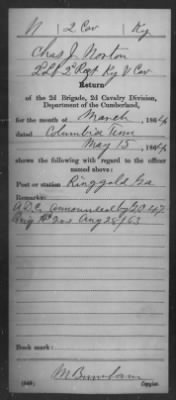 N | 2 Cav | Ky
Chas J. Norton
2 Lt 2 Regt Ky V Cav
Return
of the 2d Brigade, 2d Cavalry Division,
Department of the Cumberland,
for the month of March, 1864
dated Columbia Tenn
May 15, 1864
shows the following with regard to the officer
named above:
Post or station Ringgold Ga
Remarks:
A.D.C. announced by G.O. 
Aug 28/63
Book mark:
(649) Copyist.